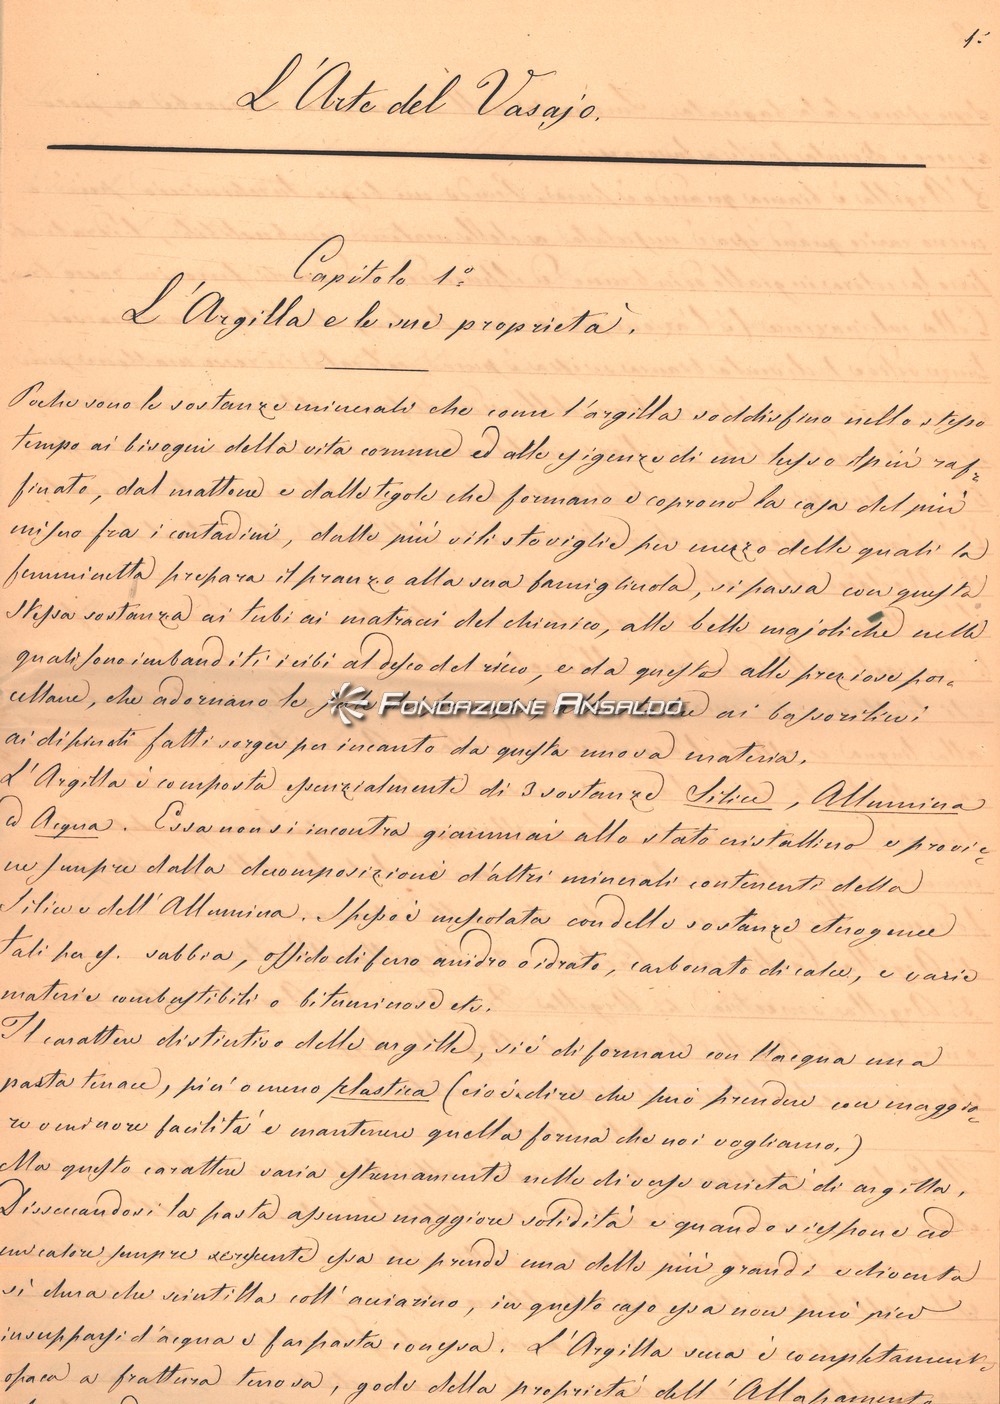 1.
L'Arte del Vasajo.
Capitolo 1º
L'Argilla e le sue proprietà.
Poche sono le sostanze minerali che come l'argilla soddisfino nello stesso
tempo ai bisogni della vita comune ed alle esigenze di un lusso il più raf-
finato, dal mattone e dalle tegole che formano e coprono la casa del più
misero fra i contadini, dalle più vili stoviglie per mezzo delle quali la
femminetta prepara il pranzo alla sua famigliuola, si passa con questa
stessa sostanza ai tubi ai matracci del chimico, alle belle majoliche nelle
quali sono imbanditi i cibi al desco del ricco, e da queste alle preziose por-
cellane, che adornano le
FONDAZIONE ANSALDO
ai bassorilievi
ai dipinti fatti sorger per incanto da questa nuova materia.
L'Argilla è composta essenzialmente di 3 sostanze Silice, Allumina
ed Acqua. Essa non si incontra giammai allo stato cristallino e provie-
ne sempre dalla decomposizione d'altri minerali contenenti della
Silice e dell'Allumina. Spesso è mescolata con delle sostanze eterogenee
tali per es. sabbia, ossido di ferro anidro o idrato, carbonato di calce, e varie
materie combustibili o bituminose etc.
Il carattere distintivo delle argille, si è di formare con l'acqua una
pasta tenace, più o meno plastica (cioè dire che può prendere con maggio-
re o minore facilità e mantenere quella forma che noi vogliamo.)
Ma questo carattere varia estremamente nelle diverse varietà di argilla.
Disseccandosi la pasta assume maggiore solidità e quando si espone ad
un calore sempre crescente essa ne prende una delle più grandi e diventa
sì dura che scintilla coll'acciarino, in questo caso essa non può più
insupparsi d'acqua e far pasta con essa. L'Argilla secca è completamente
opaca a frattura terrosa, gode della proprietà dell'Allapamento